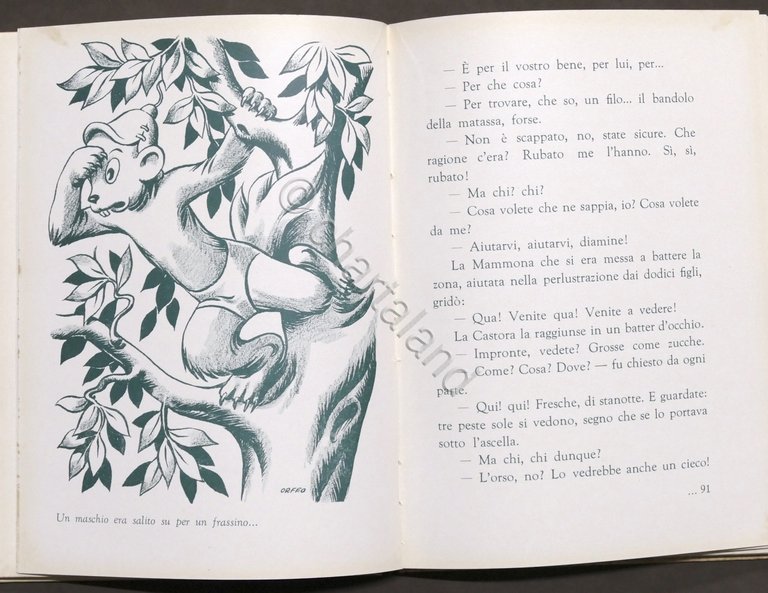 ORFEO
Un maschio era salito su per un frassino...
— È per il vostro bene, per lui, per...
— Per che cosa?
— Per trovare, che so, un filo... il bandolo
della matassa, forse.
— Non è scappato, no, state sicure. Che
ragione c'era? Rubato me l'hanno. Sì, sì,
rubato!
— Ma chi? chi?
— Cosa volete che ne sappia, io? Cosa volete
da me?
— Aiutarvi, aiutarvi, diamine!
La Mammona che si era messa a battere la
zona, aiutata nella perlustrazione dai dodici figli,
gridò:
— Qua! Venite qua! Venite a vedere!
La Castora la raggiunse in un batter d'occhio.
— Impronte, vedete? Grosse come zucche.
— Come? Cosa? Dove? — fu chiesto da ogni
parte.
— Qui! qui! Fresche, di stanotte. E guardate:
tre peste sole si vedono, segno che se lo portava
sotto l'ascella.
— Ma chi, chi dunque?
— L'orso, no? Lo vedrebbe anche un cieco!
... 91
© chartaland